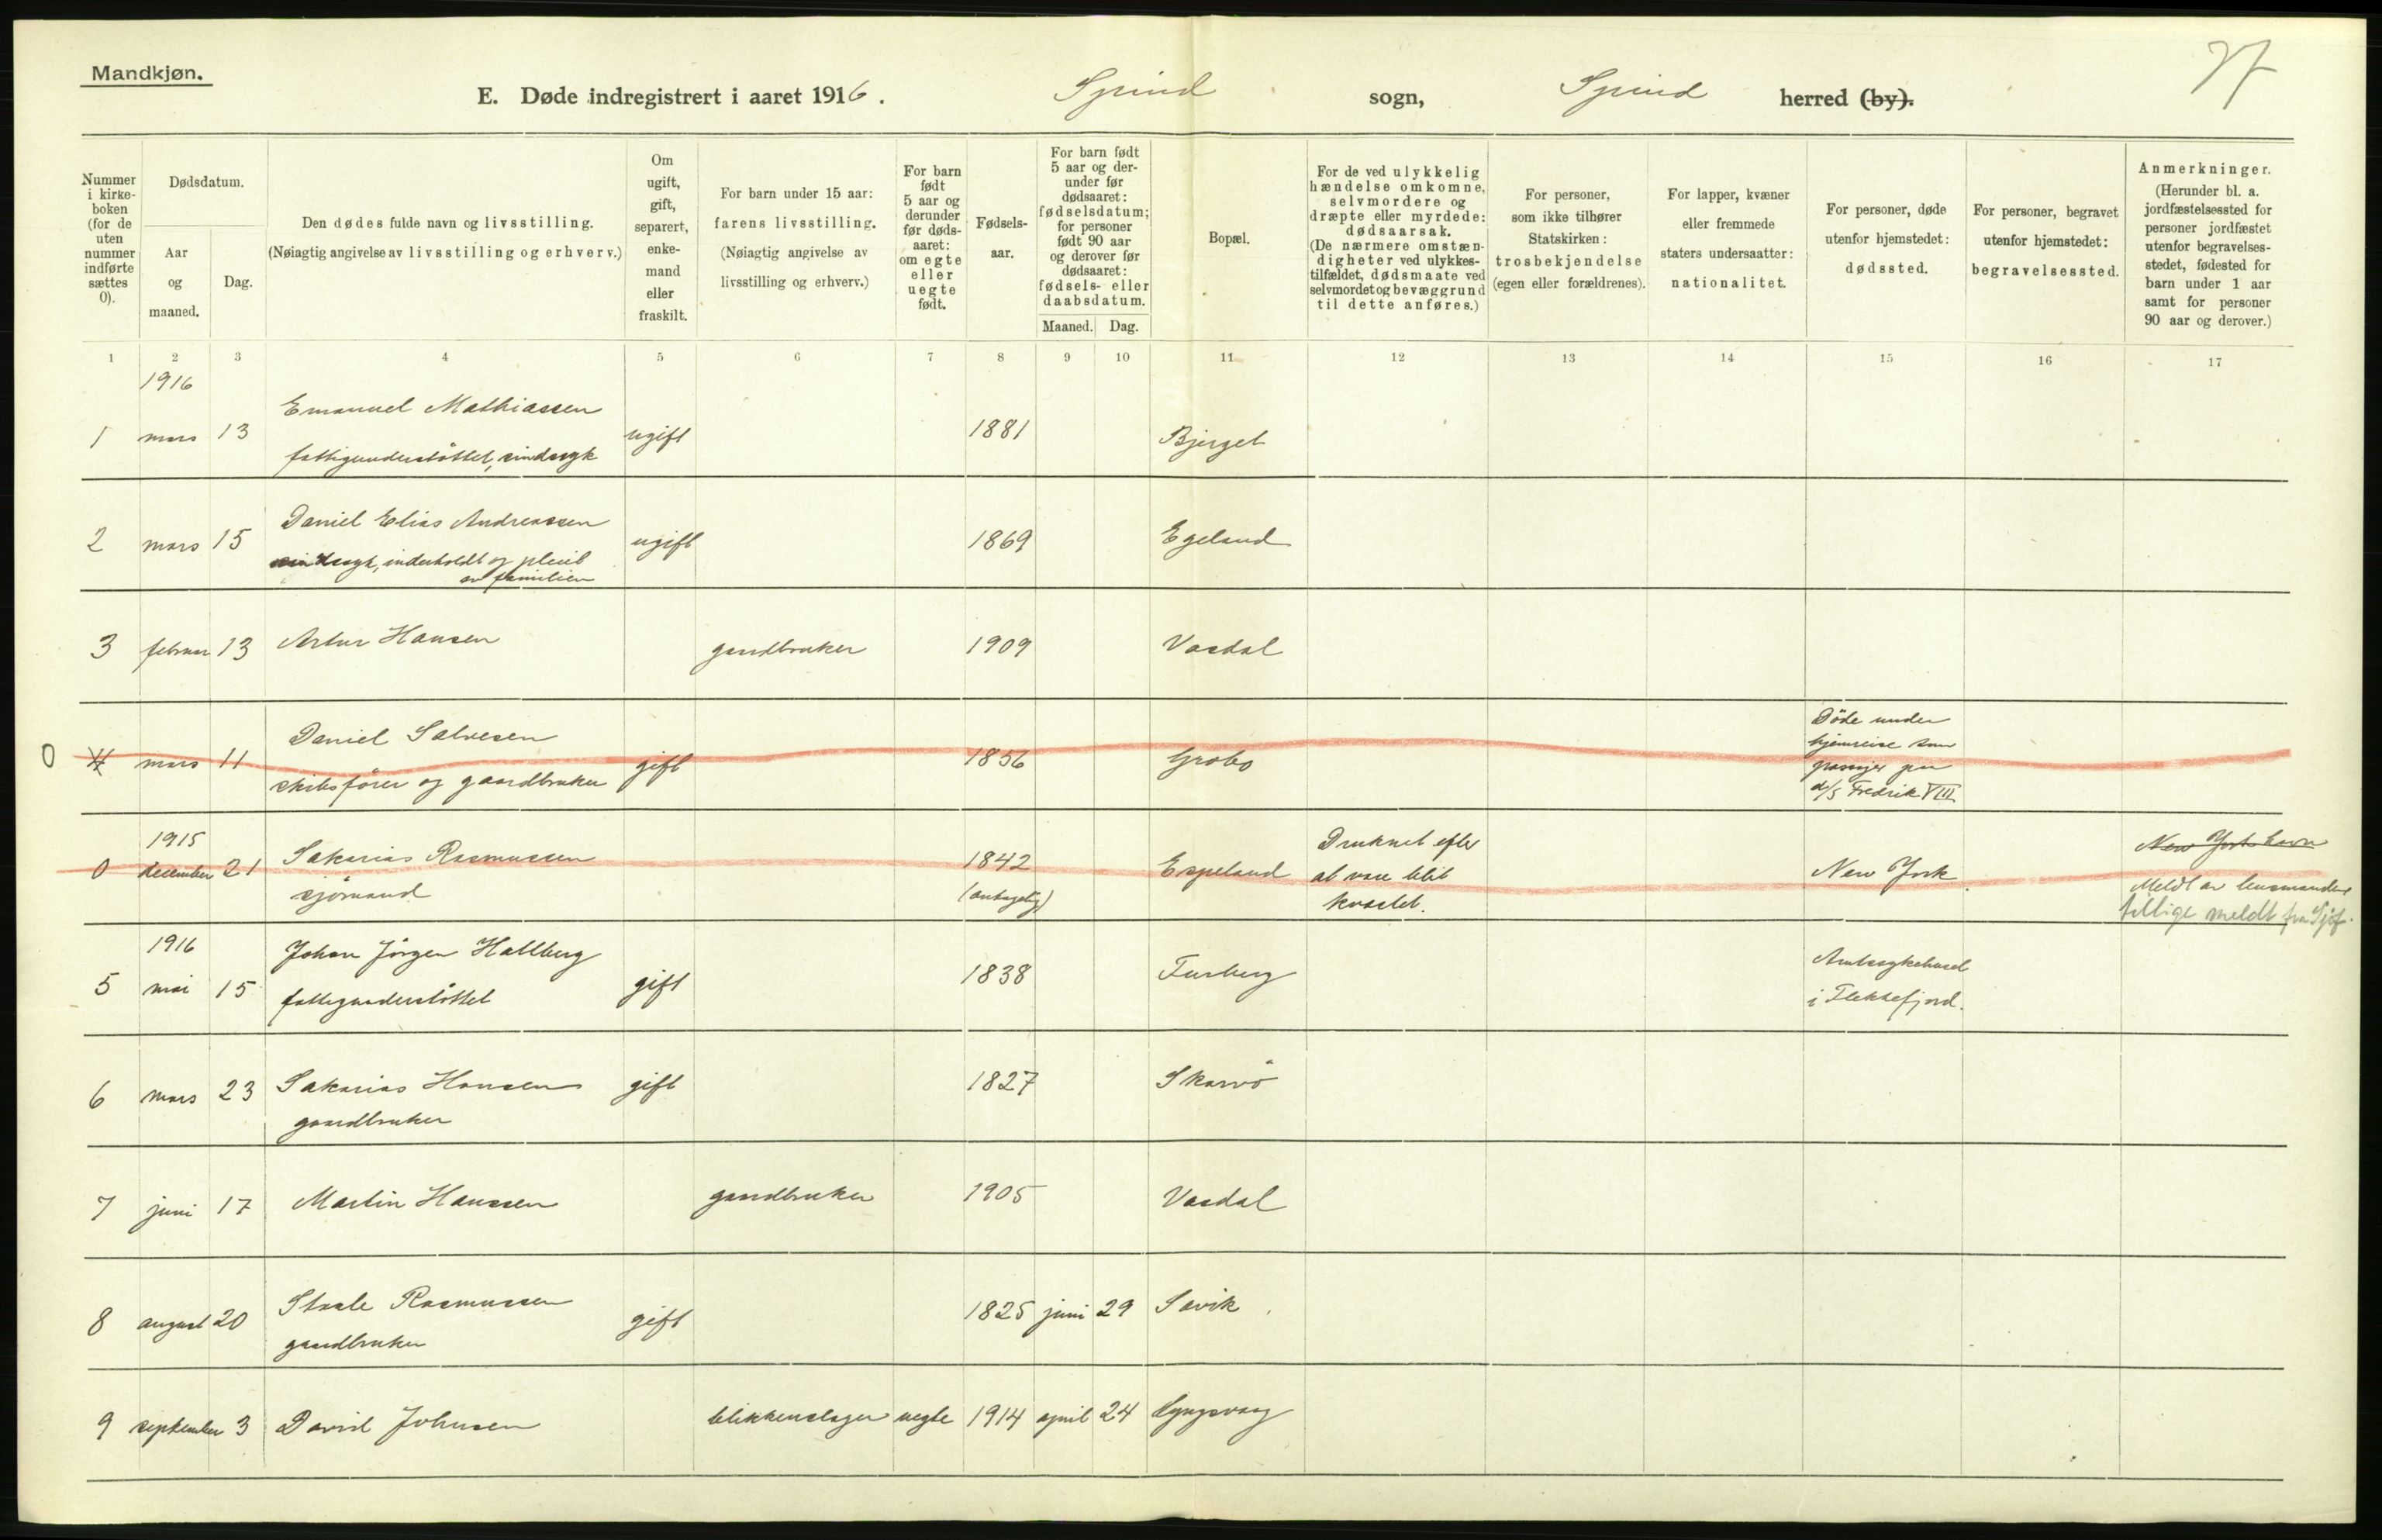 Mandkjøn.
E. Døde indregistrert i aaret 1916. Spind sogn, Spind herred (by).
Nummer i kirke-boken (for de uten nummer indførte sættes 0).
Dødsdatum.
Aar og maaned.
Dag.
Den dødes fulde navn og livsstilling.
(Nøiagtig angivelse av livsstilling og erhverv.)
Om ugift, gift, separert, enke-mand eller fraskilt.
For barn under 15 aar:
farens livsstilling.
(Nøiagtig angivelse av livsstilling og erhverv.)
For barn født 5 aar og derunder før døds-aaret: om egte eller uegte født.
Fødsels-aar.
For barn født 5 aar og der-under før dødsaaret: fødselsdatum; for personer født 90 aar og derover før dødsaaret: fødsels- eller daabsdatum.
Maaned. Dag.
Bopæl.
For de ved ulykkelig hændelse omkomne, selvmordere og dræpte eller myrdede: dødsaarsak.
(De nærmere omstæn-digheter ved ulykkes-tilfældet, dødsmaate ved selvmordet og bevæggrund til dette anføres.)
For personer, som ikke tilhører Statskirken: trosbekjendelse (egen eller forældrenes).
For lapper, kvæner eller fremmede staters undersaatter: nationalitet.
For personer, døde utenfor hjemstedet: dødssted.
For personer, begravet utenfor hjemstedet: begravelsessted.
Anmerkninger.
(Herunder bl. a. jordfæstelsessted for personer jordfæstet utenfor begravelses-stedet, fødested for barn under 1 aar samt for personer 90 aar og derover.)
1 2 3 4 5 6 7 8 9 10 11 12 13 14 15 16 17
1916
Emanuel Mathiassen
1 mars 13 ugift 1881 Bjerget
fattigunderstøttet, sindssyk
Daniel Elias Andreassen
2 mars 15 ugift 1869 Egeland
sindssyk, underholdt og pleiet
av familien
3 februar 13 Artur Hansen gaardbruker 1909 Vasdal
Daniel Salvesen Døde under
hjemreise som
0 4 mars 11 gift 1856 Grobo passajer paa
skibsfører og gaardbruker d/s Fredrik VIII
1915 Druknet efter New York havn
0 december 21 Sakarias Rasmussen 1842 Espeland at vare blit New York
sjømand (antagelig) kvastet. Meldt av lensmanden
tillige meldt fra Sjøf.
1916 Johan Jörgen Hallberg Amtssykehuset
5 mai 15 gift 1838 Furberg
fattigunderstöttet i Flekkefjord.
6 mars 23 Sakarias Hansen gift 1827 Skarvö
gaardbruker
7 juni 17 Martin Hanssen gaardbruker 1905 Vasdal
8 august 20 Staale Rasmussen gift 1825 juni 29 Savik
gaardbruker
9 september 3 David Johnsen blikkenslager uegte 1914 april 24